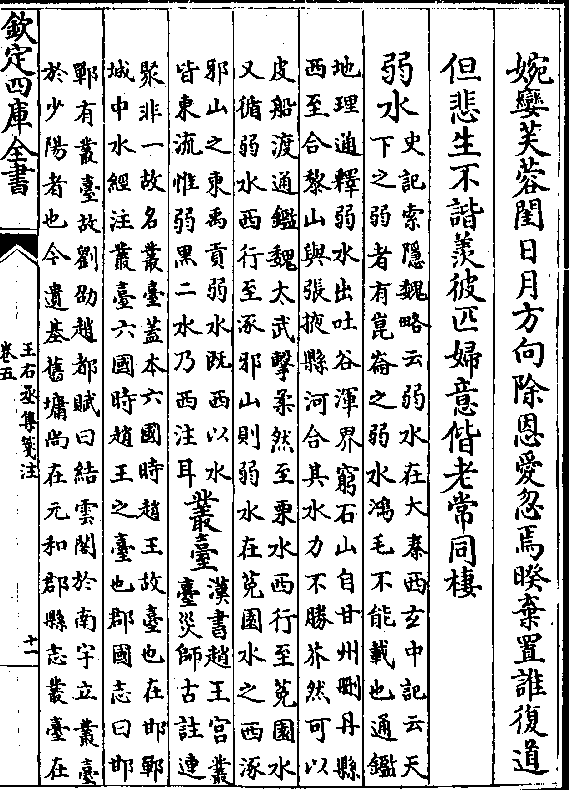 婉孌芙蓉閨日月方向除恩愛忽焉暌棄置誰復道
但悲生不諧羨彼匹婦意偕老常同棲
弱水
史記索隱魏略云弱水在大秦西玄中記云天
下之弱者有崑崙之弱水鴻毛不能載也通鑑
地理通釋弱水出吐谷渾界窮石山自甘州刪丹縣
西至合黎山與張掖縣河合其水力不勝芥然可以
皮船渡通鑑魏太武擊柔然至栗水西行至菟園水
又循弱水西行至涿邪山則弱水在菟園水之西涿
邪山之東禹貢弱水既西以水
皆東流惟弱黑二水乃西注耳
叢臺
漢書趙王宮叢
臺災師古註連
聚非一故名叢臺蓋本六國時趙王故臺也在邯鄲
城中水經注叢臺六國時趙王之臺也郡國志曰邯
鄲有叢臺故劉劭趙都賦曰結雲閣於南宇立叢臺
於少陽者也今遺基舊墉尚在元和郡縣志叢臺在
欽定四庫全書
王右丞集箋注
卷五
十一